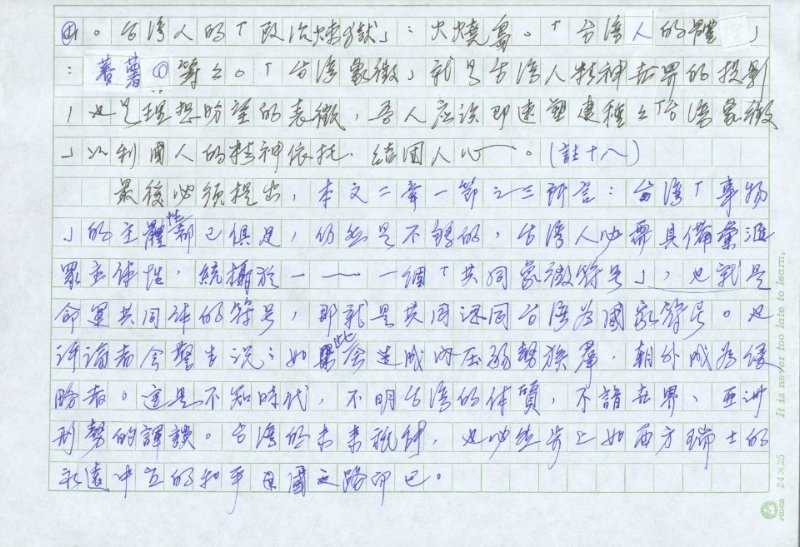 ④。台灣人的「政治煉獄」：火燒島。「台灣人的體」
：蕃薯①等々。「台灣象徵」就是台灣人精神世界的投影
，也是理想盼望的表徵，吾人應該即速塑建種々「台灣象徵
」以利國人的精神依托．結國人心。(註十八)
最後必須提出，本文二章一節之三所言：台灣「事物
」的主體性都已俱足，仍然是不夠的，台灣人必需具備彙滙
眾主体性，統攝於一——一個「共同象徵符号」，也就是
命運共同体的符号，那就是共同認同台灣為國家符号。也
許論者會聲言說：如此會造成內压弱勢族羣．朝外成為侵
略者。這是不知時代，不明台灣的体質，不諳世界、亞洲
形勢的譯談。台灣的未來抉擇，也必然步上如西方瑞士的
永遠中立的和平國之路而已。
It is never too late to learn.
24×25